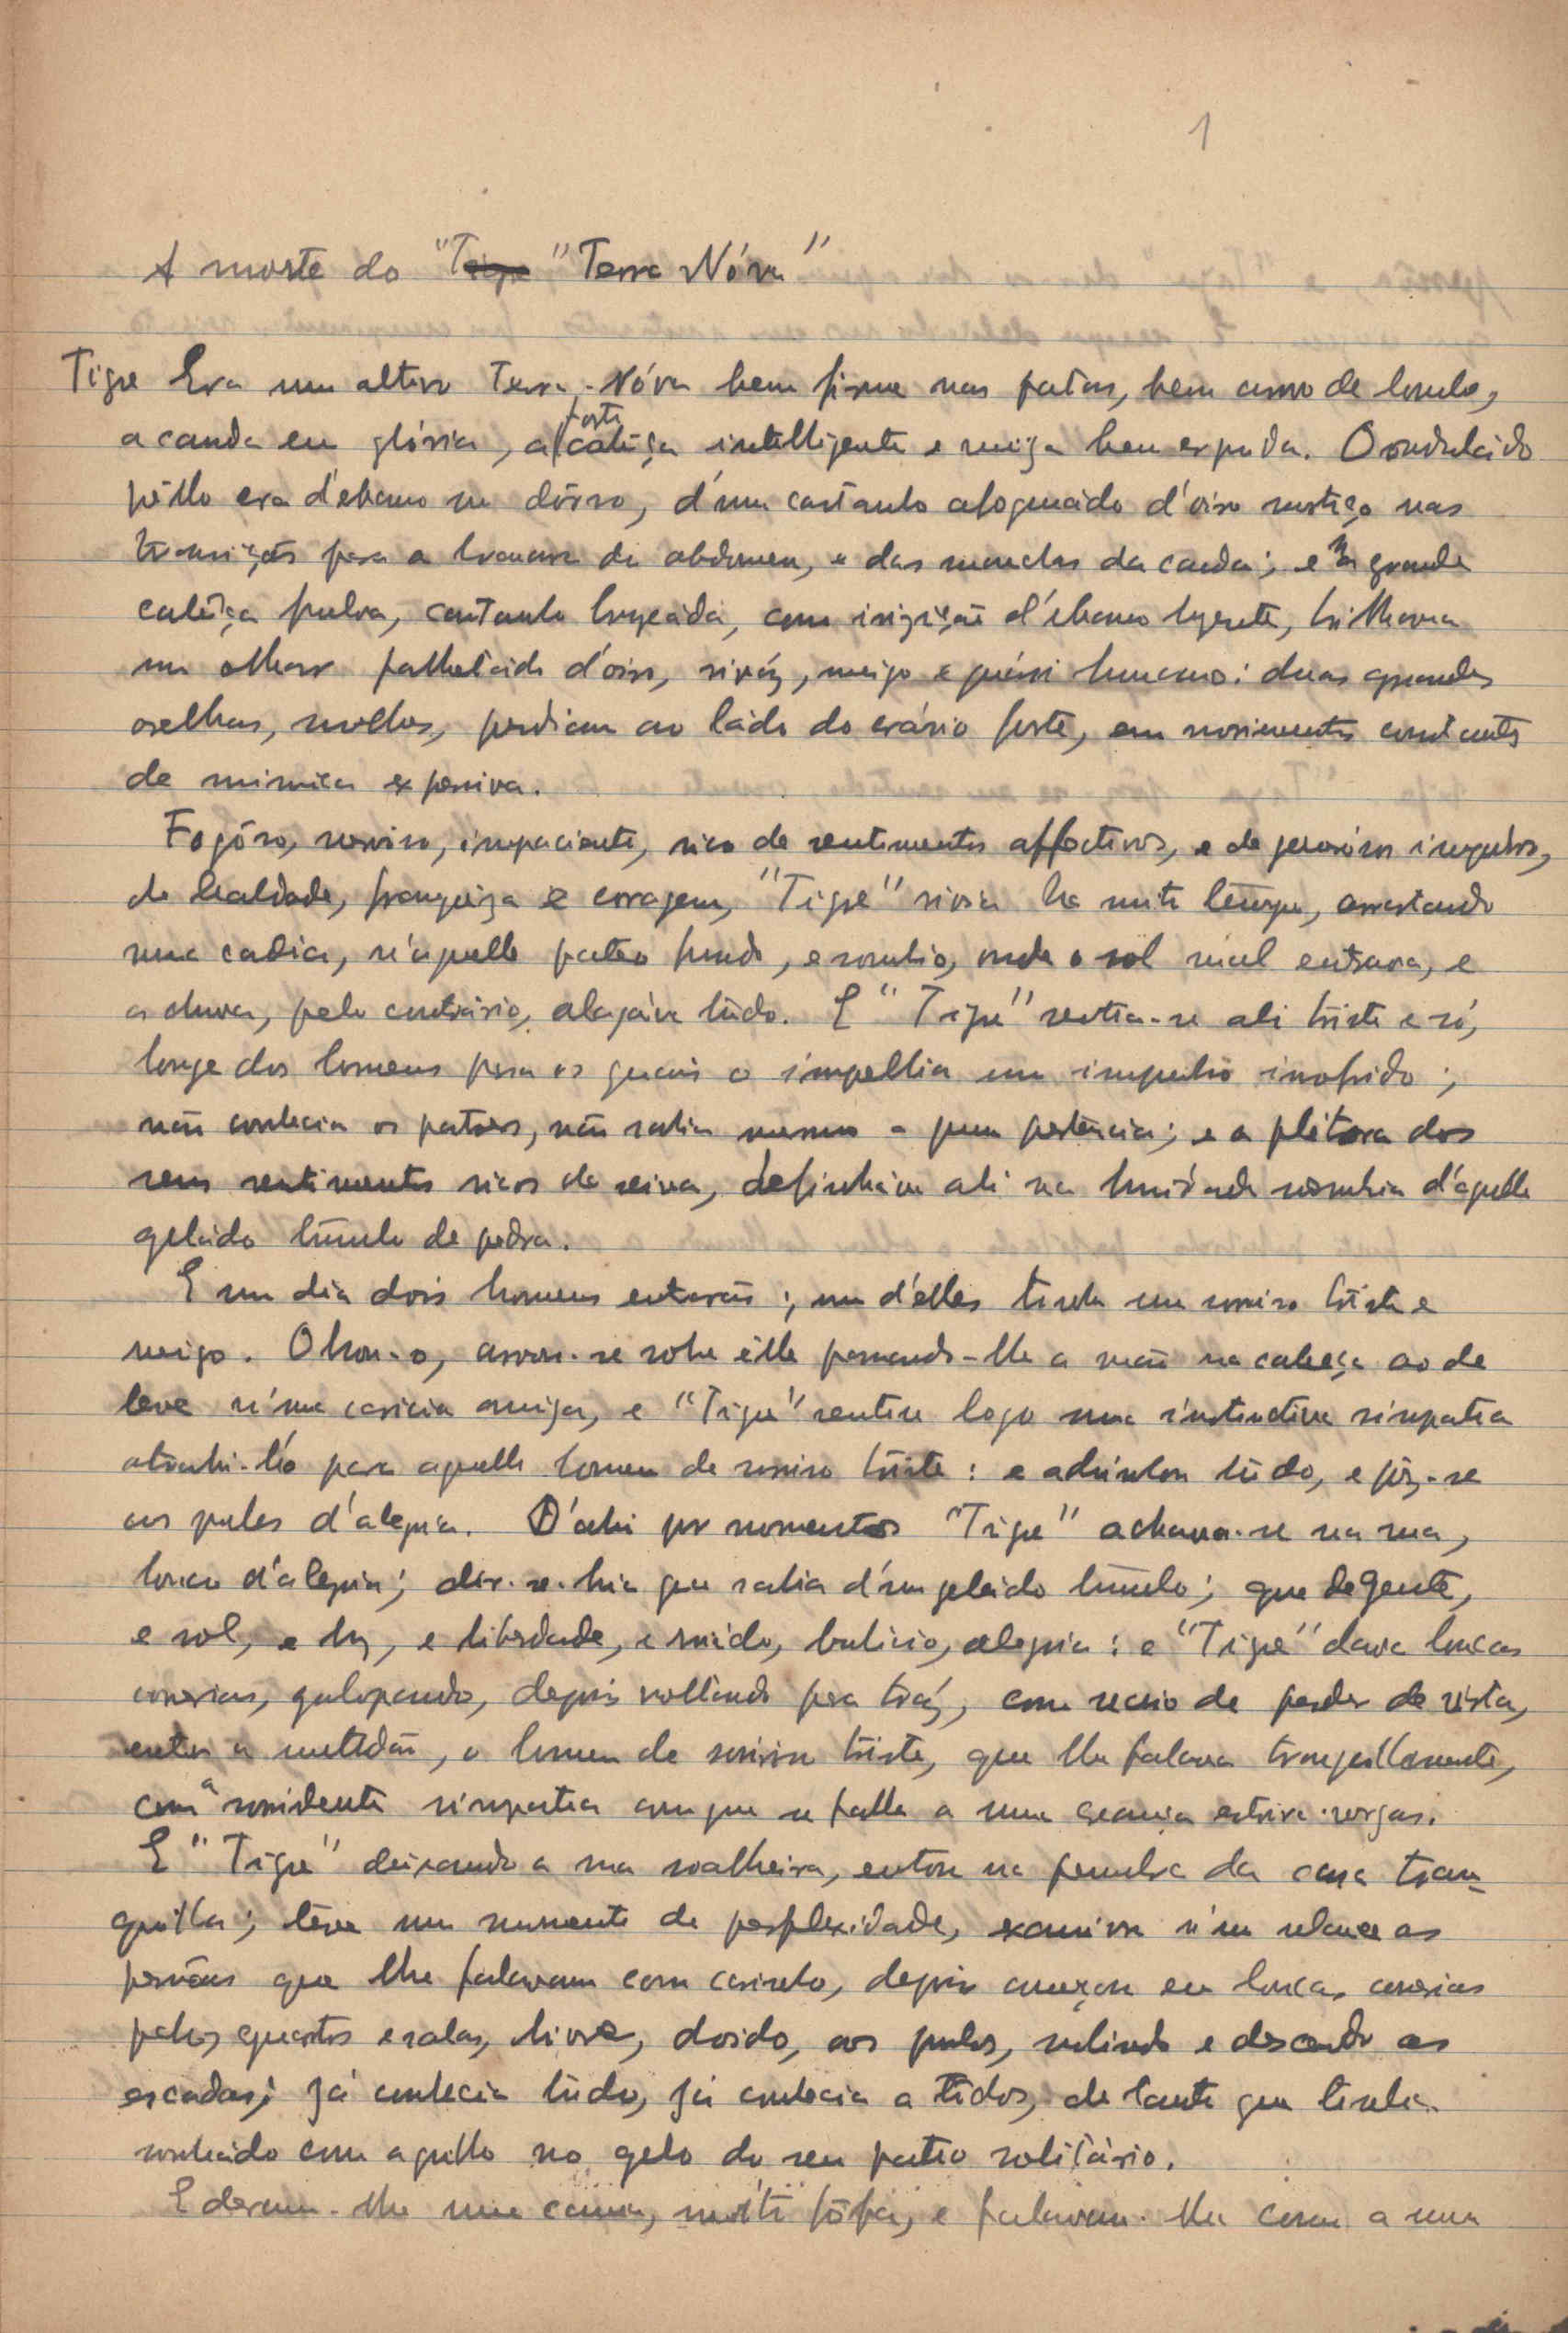 1
A morte do "Tigre" "Terra Nóva"
Tigre Era um altivo Terra-Nóva bem firme nas patas, bem arcado de lombo,
a cauda em glória, a forte cabêça intelligente e meiga bem erguida. O ondulado
pêllo era d'ebano no dôrso, d'um castanho afogueádo d'oiro mortiço nas
transições para a brancura do abdomen, e das manchas da cauda; e na grande
cabêça fulva, castanho bronzeáda, com d'ebano luzente, brilhava
um olhar palhetádo d'oiro, viváz, meigo e quási humano: duas grandes
orelhas, molles, pendiam ao ládo do crânio forte, em movimentos constantes
de mimica expressiva.
Fogôso, nervoso, impaciente, rico de sentimentos affectivos, e de generósos impulsos,
de lealdade, franqueza e coragem, "Tigre" vivia ha muito tempo, arrastando
uma cadeia, n'aquelle pateo fundo, e sombrio, onde o sol mal entrava, e
a chuva, pelo contrário, alagáva tudo. E "Tigre" sentia-se ali triste e só,
longe dos homens para os quais o impellia um impulso insofrido;
não conhecia os patrões, não sabia mesmo a quem pertencia; e a plétora dos
seus sentimentos ricos de seiva, definháva ali na humidade sombria d'aquelle
geládo túmulo de pedra.
E um dia dois homens entrarão; um d'elles tinha um sorriso triste e
meigo. Olhou-o, sobre êlle passando-lhe a mão na cabeça ao de
leve n'uma caricia amiga, e "Tigre" sentiu logo uma instinctiva simpatia
atrahi-lo para aquelle homem de sorriso triste: e adivinhou tudo, e pôz-se
aos pulos d'alegria. D'ahi por momentos "Tigre" achava-se na rua,
louco d'alegria; dir-se-hia que sahia d'um geládo túmulo; que de gente,
e sol, e luz, e liberdade, e ruído, bulicio, alegria: e "Tigre" dava loucas
correrias, galopando, depois voltando para tráz, com receio de perder de vista,
entre a multidão, o homem de sorriso triste, que lhe falava tranquillamente,
com a sorridente simpatia com que se falla a uma creança estroina.
E "Tigre" deixando a rua soalheira, entrou na penumbra da casa tran-
quilla; teve um momento de perplexidade, examinou n'um relance as
pessôas que lhe falavam com carinho, depois começou em loucas correrias
pelos quartos e salas, livre, doido, aos pulos, subindo e descendo as
escadas; já conhecia tudo, já conhecia a todos, de tanto que tinha
sonhado com aquillo no gelo do seu pateo solitário.
E deram-lhe uma cama, muito fôfa, e falavam-lhe como a uma